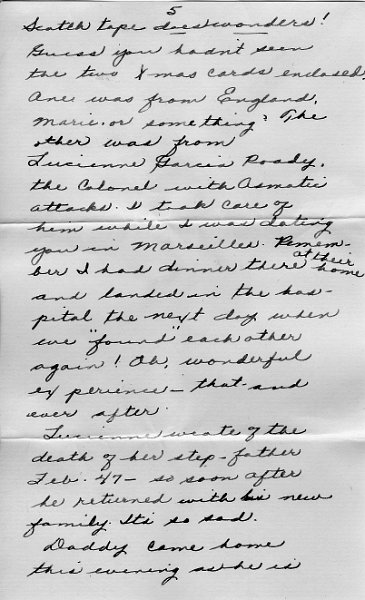 5
Scotch tape does wonders!
Guess you hadn't seen
the two Xmas cards enclosed.
One was from England,
Marie or something? The
other was from
Lucienne Garcin Roady,
the Colonel with Asmatic
attacks. I took care of
him while I was dating
you in Marseilles. Remem-
ber I had dinner there at their home
and landed in the hos-
pital the next day when
we "found" each other
again! Oh, wonderful
experience - that - and
ever after.
Lucienne wrote of the
death of her step-father
Feb. 47 - so soon after
he returned with his new
family. It's so sad.
Daddy came home
this evening as he is